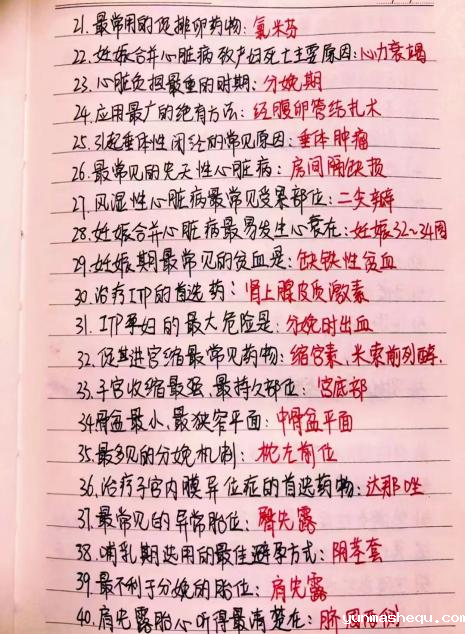 21.最常用的促排卵药物：氯米芬
22.妊娠合并心脏病致产妇死亡主要原因：心力衰竭
23.心脏负担最重的时期：分娩期
24.应用最广的绝育方法：经腹卵管结扎术
25.引起垂体性闭经的常见原因：垂体肿瘤
26.最常见的先天性心脏病：房间隔缺损
27.风湿性心脏病最常见受累部位：二尖瓣
28.妊娠合并心脏病最易发生心衰在：妊娠32~34周
29.妊娠期最常见的贫血是：缺铁性贫血
30.治疗ITP的首选药：肾上腺皮质激素
31.ITP孕妇的最大危险是：分娩时出血
32.促其进宫缩最常见药物：缩宫素、米索前列醇.
33.子宫收缩最强、最持久部位：宫底部
34.骨盆最小、最狭窄平面：中骨盆平面
35.最多见的分娩机制：枕左前位
36.治疗子宫内膜异位症的首选药物：达那唑
37.最常见的异常胎位：臀先露
38.哺乳期选用的最佳避孕方式：阴茎套
39.最不利于分娩的胎位：肩先露
40.肩先露胎心听得最清楚在：脐周两侧
yunmashequ.com